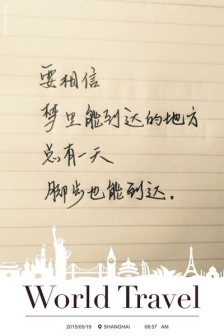 要相信
梦里能到达的地方
总有一天
脚步也能到达。
World Travel
2015/05/19 SHANGHAI 08:57 AM